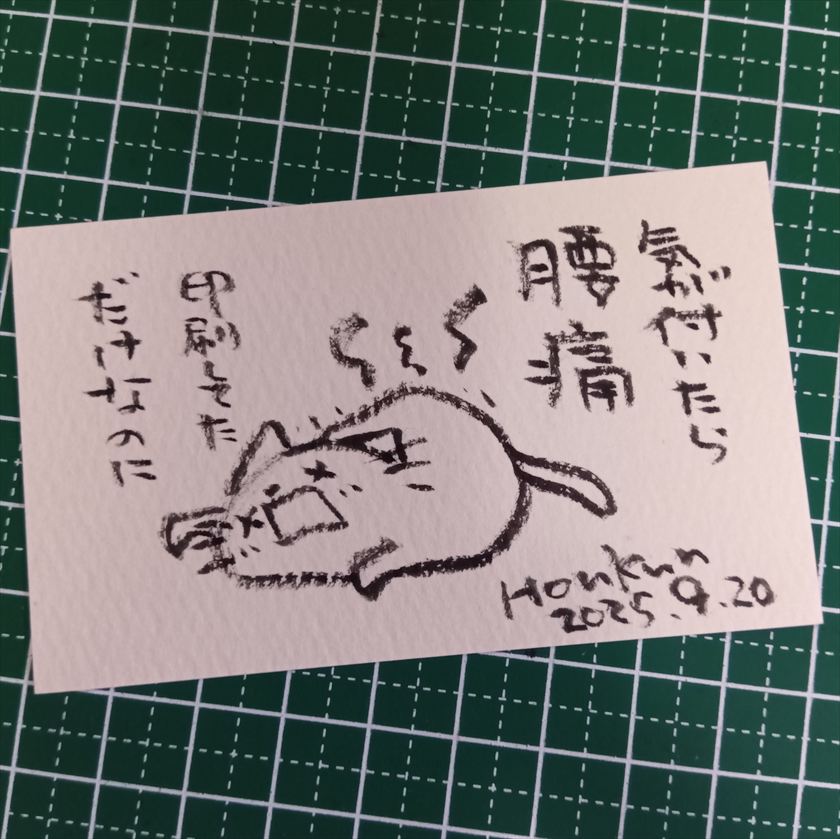 気が付いたら
腰痛
印刷してた
だけなのに
Honkun
2025.9.20